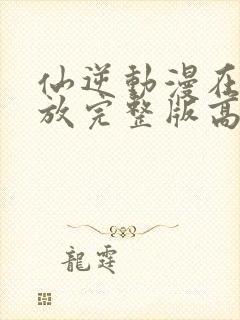 仙逆動漫在
放完整版高
龍霆